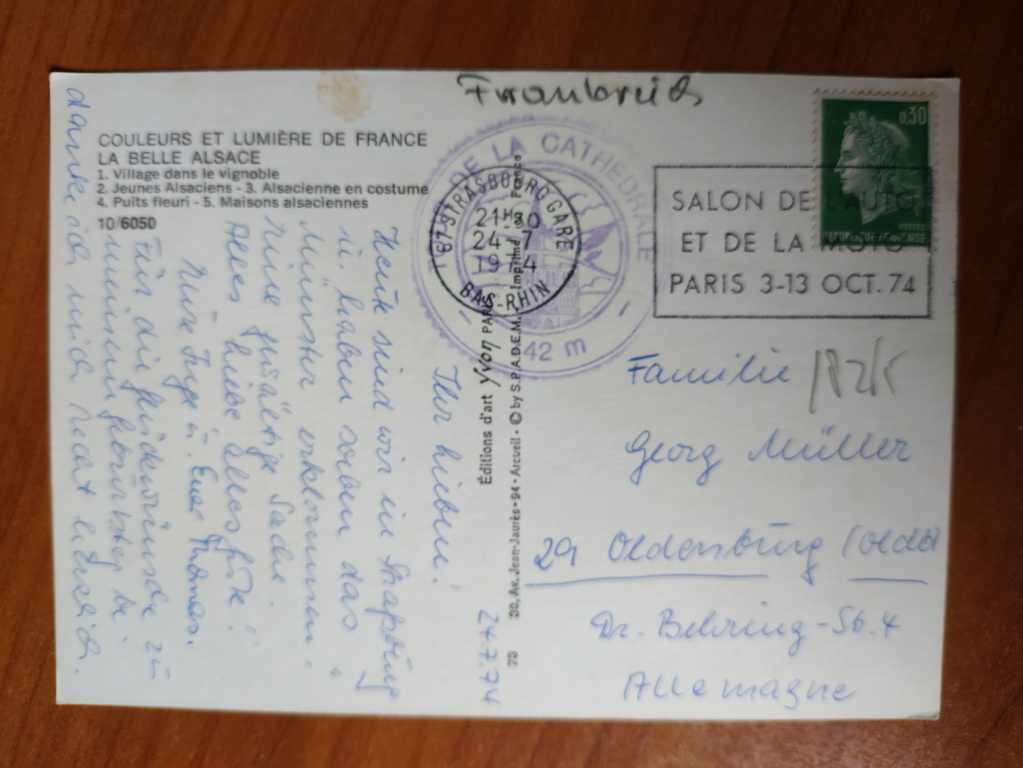 Frankreich
COULEURS ET LUMIÈRE DE FRANCE
LA BELLE ALSACE
1. Village dans le vignoble
2. Jeunes Alsaciens - 3. Alsacienne en costume
4. Puits fleuri - 5. Maisons alsaciennes
10/6050
DE LA CATHÉDRALE
142 m
67-STRASBOURG GARE
21H30
24-7
1974
BAS-RHIN
SALON DE L'AUTO
ET DE LA MOTO
PARIS 3-13 OCT. 74
0,30
POSTES
REPUBLIQUE FRANÇAISE
24.7.74
Ihr Lieben!
Heute sind wir in Straßburg
u. haben soeben das
Münster erklommen.
Eine Sache.
Alles liebe alles gute!
Eure Inge u. Euer Thomas.
Für die Glückwünsche zu
meinem Geburtstag be-
danke ich mich recht herzlich.
Éditions d'art Yvon PARIS
30, Av. Jean-Jaurès - 94 - Arcueil - © by S.P.A.D.E.M. Imprimé en France
73
Familie
Georg Müller
29 Oldenburg (Oldb)
Dr. Behring-Str. 4
Allemagne